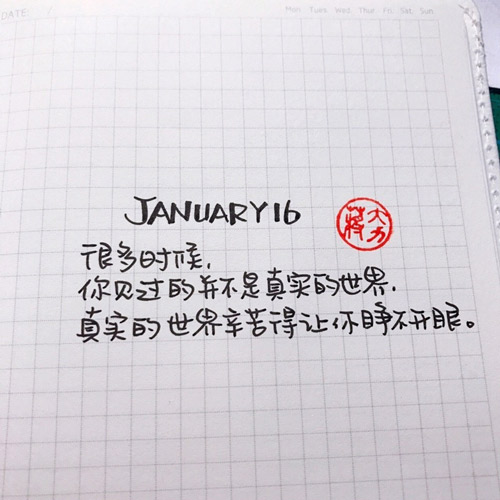 DATE: /
Mon. Tues. Wed. Thur. Fri. Sat. Sun.
JANUARY 16
很多时候,
你见过的并不是真实的世界,
真实的世界辛苦得让你睁不开眼。
大力
蒋